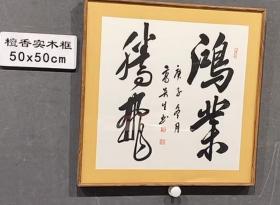 檀香实木框
50x50cm
鸿业
腾飞
庚子冬月